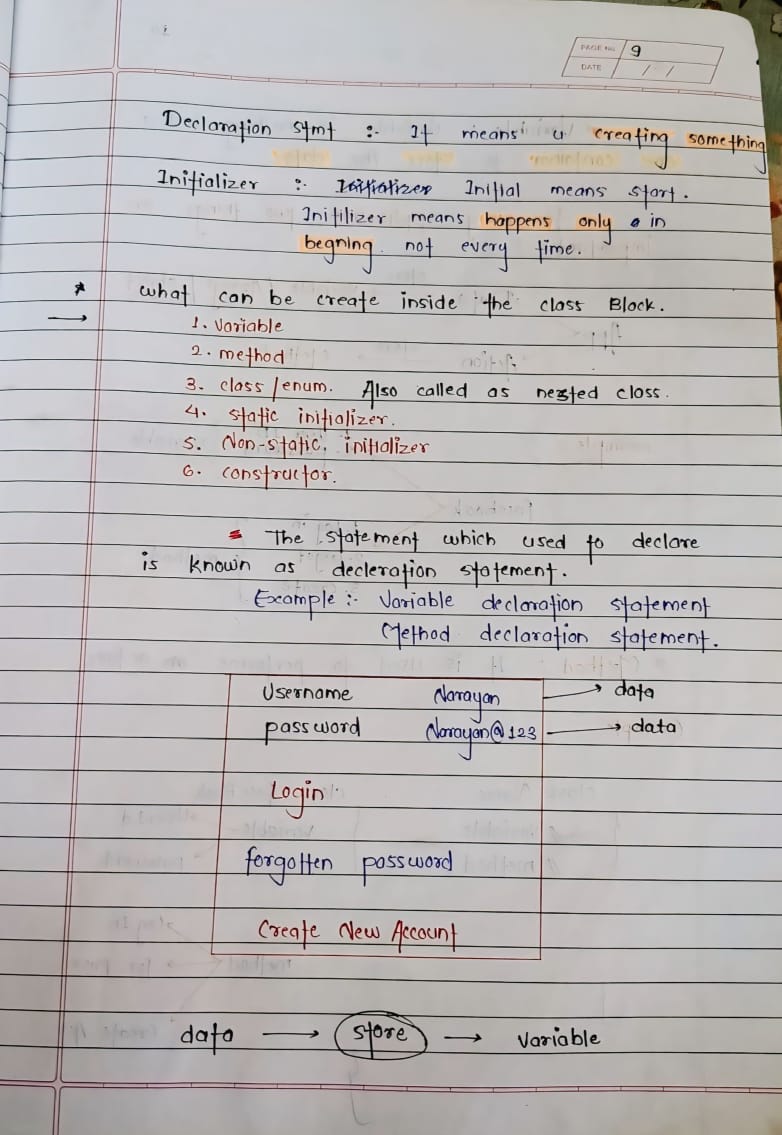 PAGE NO. 9
DATE / /
Declaration stmt :- It means creating something
Initializer :- Initializer Initial means start.
Initilizer means happens only in
begning not every time.
* what can be create inside the class Block.
→ 1. Variable
2. method
3. class/enum. Also called as nested class.
4. static initializer.
5. Non-static. initializer
6. constructor.
The statement which used to declare
is known as decleration statement.
Example :- Variable declaration statement
Method declaration statement.
Username Narayan → data
password Narayan@123 → data
Login
forgotten password
Create New Account
data → store → variable